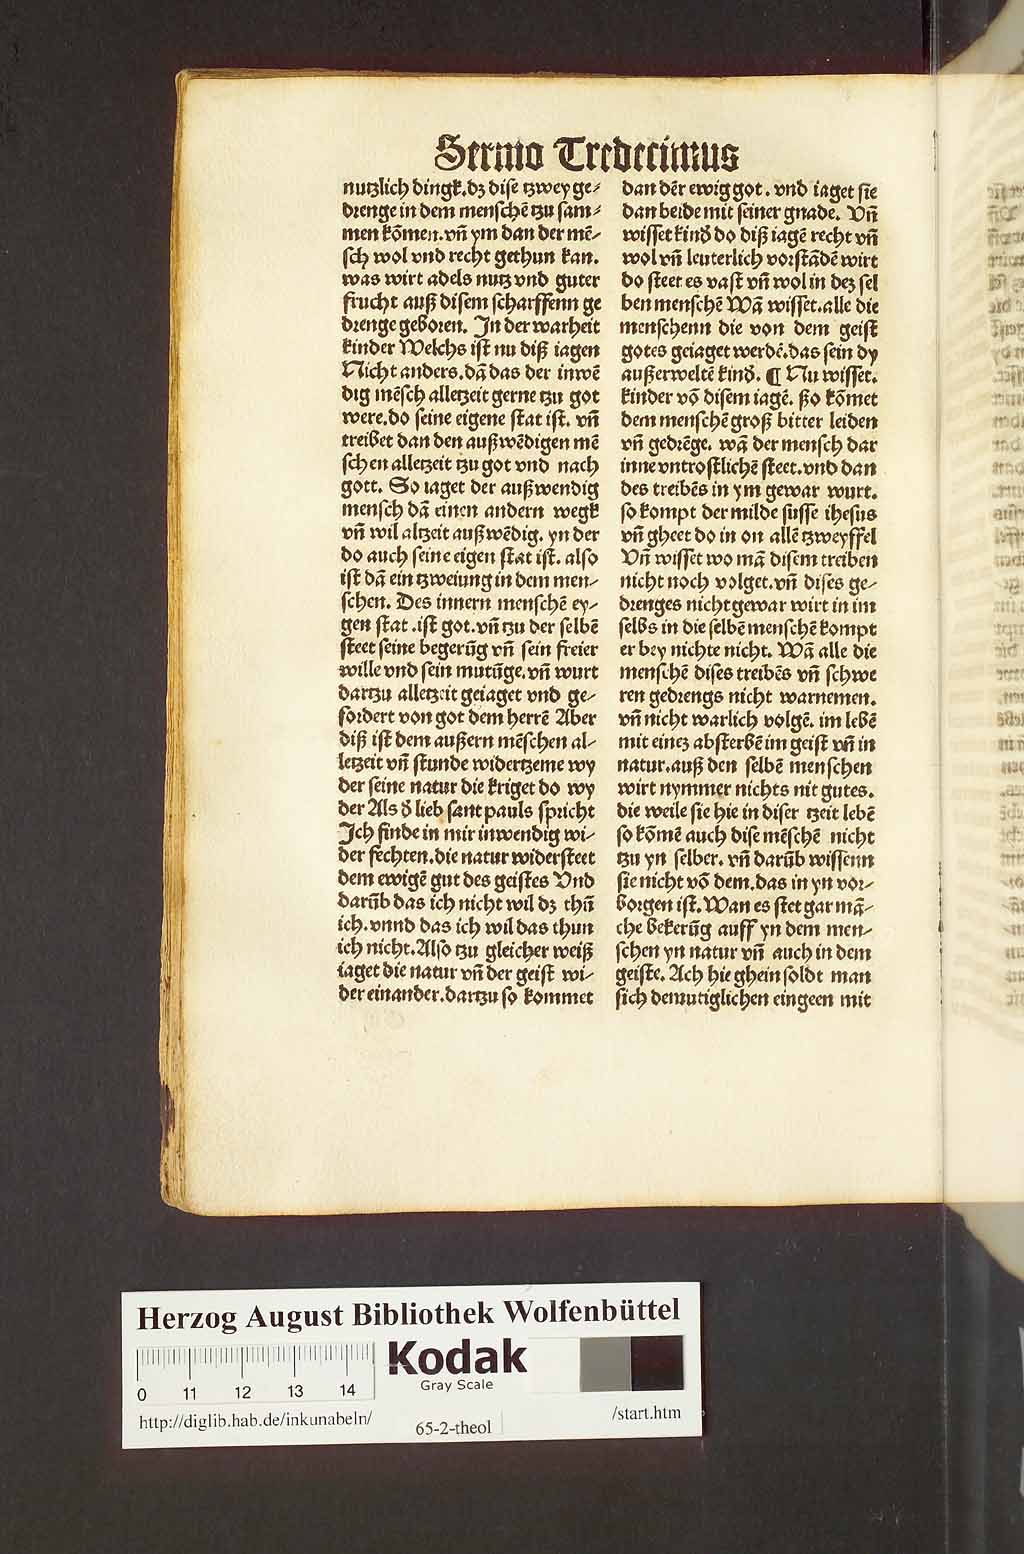 Sermo Tredecimus
nutzlich dingk.dz dise tzwey ge⸗
drenge in dem menschē tzu sam⸗
men kōmen.vn̄ ym dan der mē⸗
sch wol vnd recht gethun kan.
was wirt adels nutz vnd guter
frucht auß disem scharffenn ge
drenge geboren. In der warheit
kinder Welchs ist nu diß iagen
Nicht anders.dā das der inwē
dig mēsch alletzeit gerne tzu got
were.do seine eigene stat ist. vn̄
treibet dan den außwēdigen mē
schen alletzeit tzu got vnd nach
gott. So iaget der außwendig
mensch dā einen andern wegk
vn̄ wil altzeit außwēdig. yn der
do auch seine eigen stat ist. also
ist dā ein tzweiung in dem men⸗
schen. Des innern menschē ey⸗
gen stat .ist got.vn̄ tzu der selbē
steet seine begerūg vn̄ sein freier
wille vnd sein mutūge.vn̄ wurt
dartzu alletzeit geiaget vnd ge⸗
fordert von got dem herrē Aber
diß ist dem außern mēschen al⸗
letzeit vn̄ stunde widertzeme wy
der seine natur die kriget do wy
der Als d̕ lieb sant pauls spricht
Ich finde in mir inwendig wi⸗
der fechten.die natur widersteet
dem ewigē gut des geistes Vnd
darūb das ich nicht wil dz thū
ich.vnnd das ich wil das thun
ich nicht.Also tzu gleicher weiß
iaget die natur vn̄ der geist wi⸗
der einander.dartzu so kommet
dan dēr ewig got. vnd iaget sie
dan beide mit seiner gnade. Vn̄
wisset kind̕ do diß iagē recht vn̄
wol vn̄ leuterlich vorstādē wirt
do steet es vast vn̄ wol in dez sel
ben menschē Wā wisset.alle die
menschenn die von dem geist
gotes geiaget werdē.das sein dy
außerweltē kind̕. ¶ Nu wisset.
kinder vō disem iagē. ßo kōmet
dem menschē groß bitter leiden
vn̄ gedrēge. wā der mensch dar
inne vntrostlichē steet.vnd dan
des treibēs in ym gewar wurt.
so kompt der milde susse ihesus
vn̄ gheet do in on allē tzweyffel
Vn̄ wisset wo mā disem treiben
nicht noch volget.vn̄ dises ge⸗
drenges nicht gewar wirt in im
selbs in die selbē menschē kompt
er bey nichte nicht. Wā alle die
menschē dises treibēs vn̄ schwe
ren gedrengs nicht warnemen.
vn̄ nicht warlich volgē. im lebē
mit einez absterbē im geist vn̄ in
natur.auß den selbē menschen
wirt nymmer nichts nit gutes.
die weile sie hie in diser tzeit lebē
so kōmē auch dise mēschē nicht
tzu yn selber. vn̄ darūb wissenn
sie nicht vō dem.das in yn vor⸗
borgen ist.Wan es stet gar mā⸗
che bekerūg auff yn dem men⸗
schen yn natur vn̄ auch in dem
geiste. Ach hie ghein soldt man
sich demutiglichen eingeen mit
Herzog August Bibliothek Wolfenbüttel
Kodak
Gray Scale
0 11 12 13 14
http://diglib.hab.de/inkunabeln/
65-2-theol
/start.htm